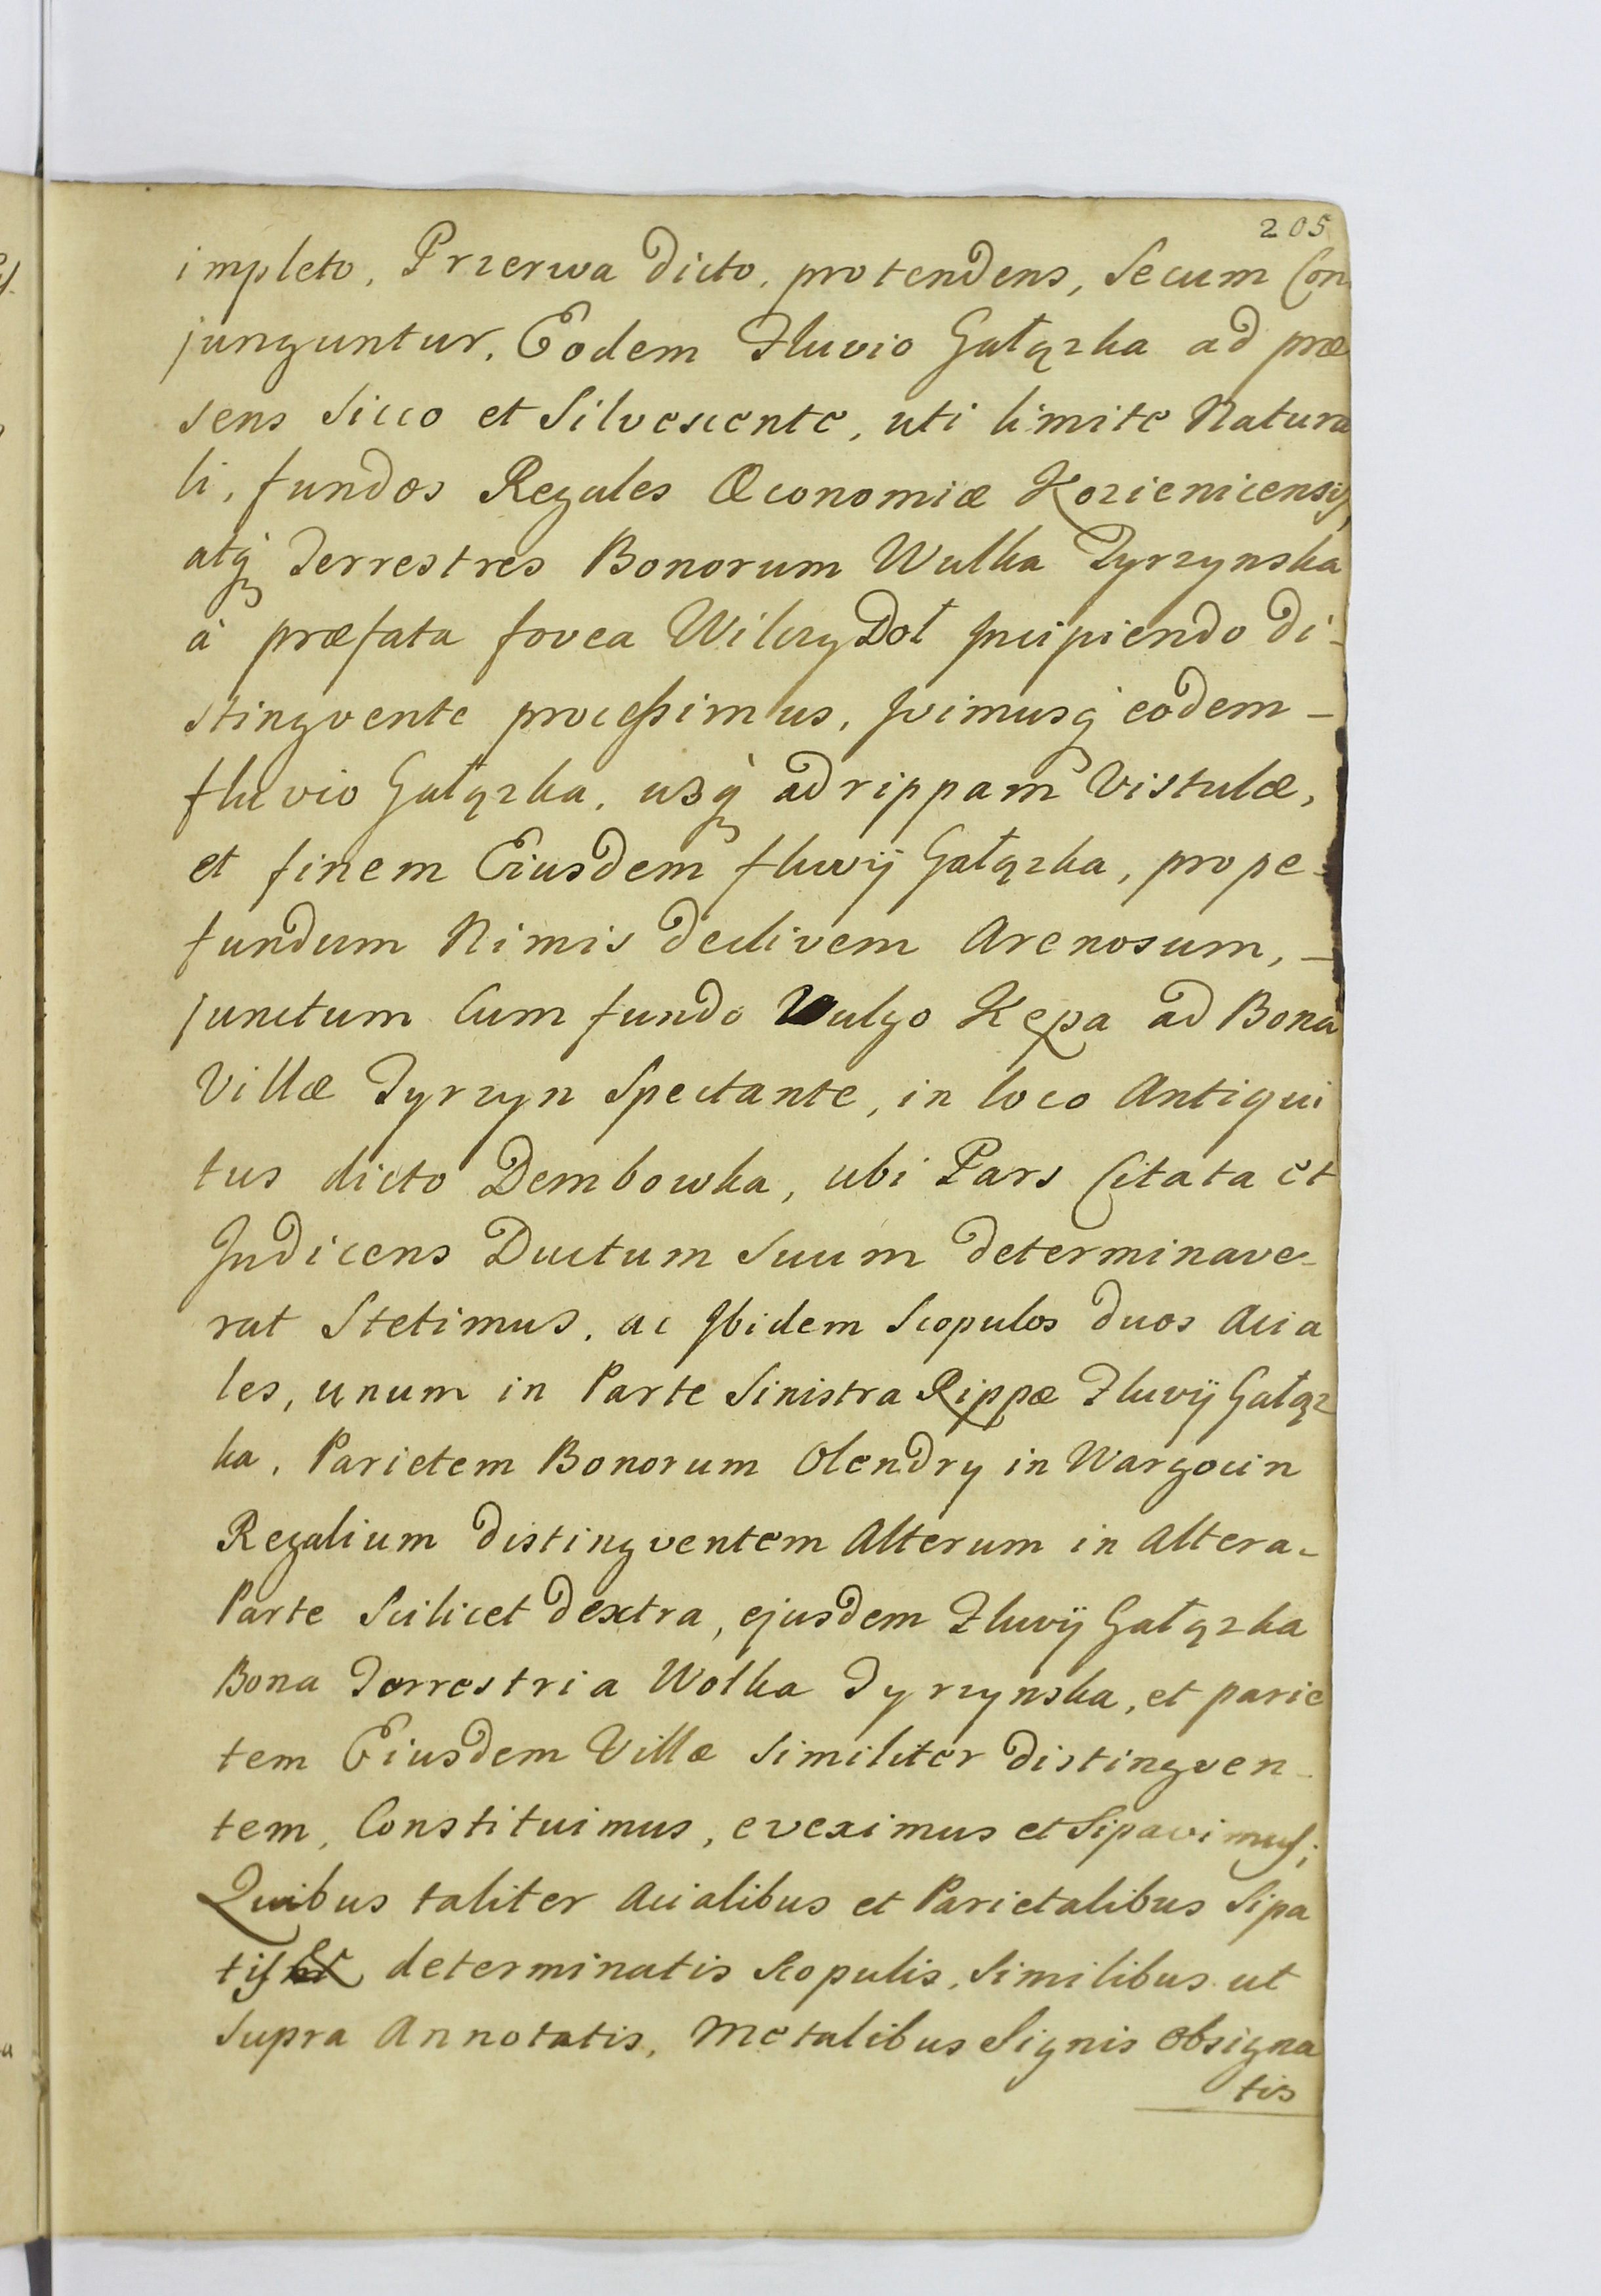 205
impleto, Przerwa dicto, protendens, Secum Con
junguntur. Eodem Fluvio Gałązka ad præ
sens Sicco et Silvescente, uti limite Natura
li, fundos Regales Œconomiæ Kozienicensis,
atq̀ Terrestres Bonorum Wulka Tyrzynska
à præfata fovea Wilczy Doł Incipiendo di-
stingvente processimus, Ivimusq̀ eodem -
fluvio Gałązka, usq̀ ad rippam Vistulæ,
et finem Eiusdem fluvij Gałązka, prope-
fundum Nimis declivem Arenosum, -
junctum Cum fundo Vulgo Kępa ad Bona
Villæ Tyrzyn Spectante, in loco Antiqui
tus dicto Dembowka, ubi Pars Citata et
Indicens Ductum Suum determinave-
rat Stetimus, ac Ibidem Scopulos duos Acia
les, unum in Parte Sinistra Rippæ Fluvij Gałąz
ka, Parietem Bonorum Olendry in Wargocin
Regalium distingventem Alterum in Altera-
Parte Scilicet dextra, ejusdem Fluvij Gałązka
Bona Terrestria Wolka Tyrzynska, et parie
tem Eiusdem Villæ Similiter distingven-
tem, Constituimus, eveximus et Sipavimus;
Quibus taliter Acialibus et Parietalibus Sipa
tis et determinatis Scopulis, Similibus ut
Supra Annotatis, Metalibus Signis Obsigna
tis